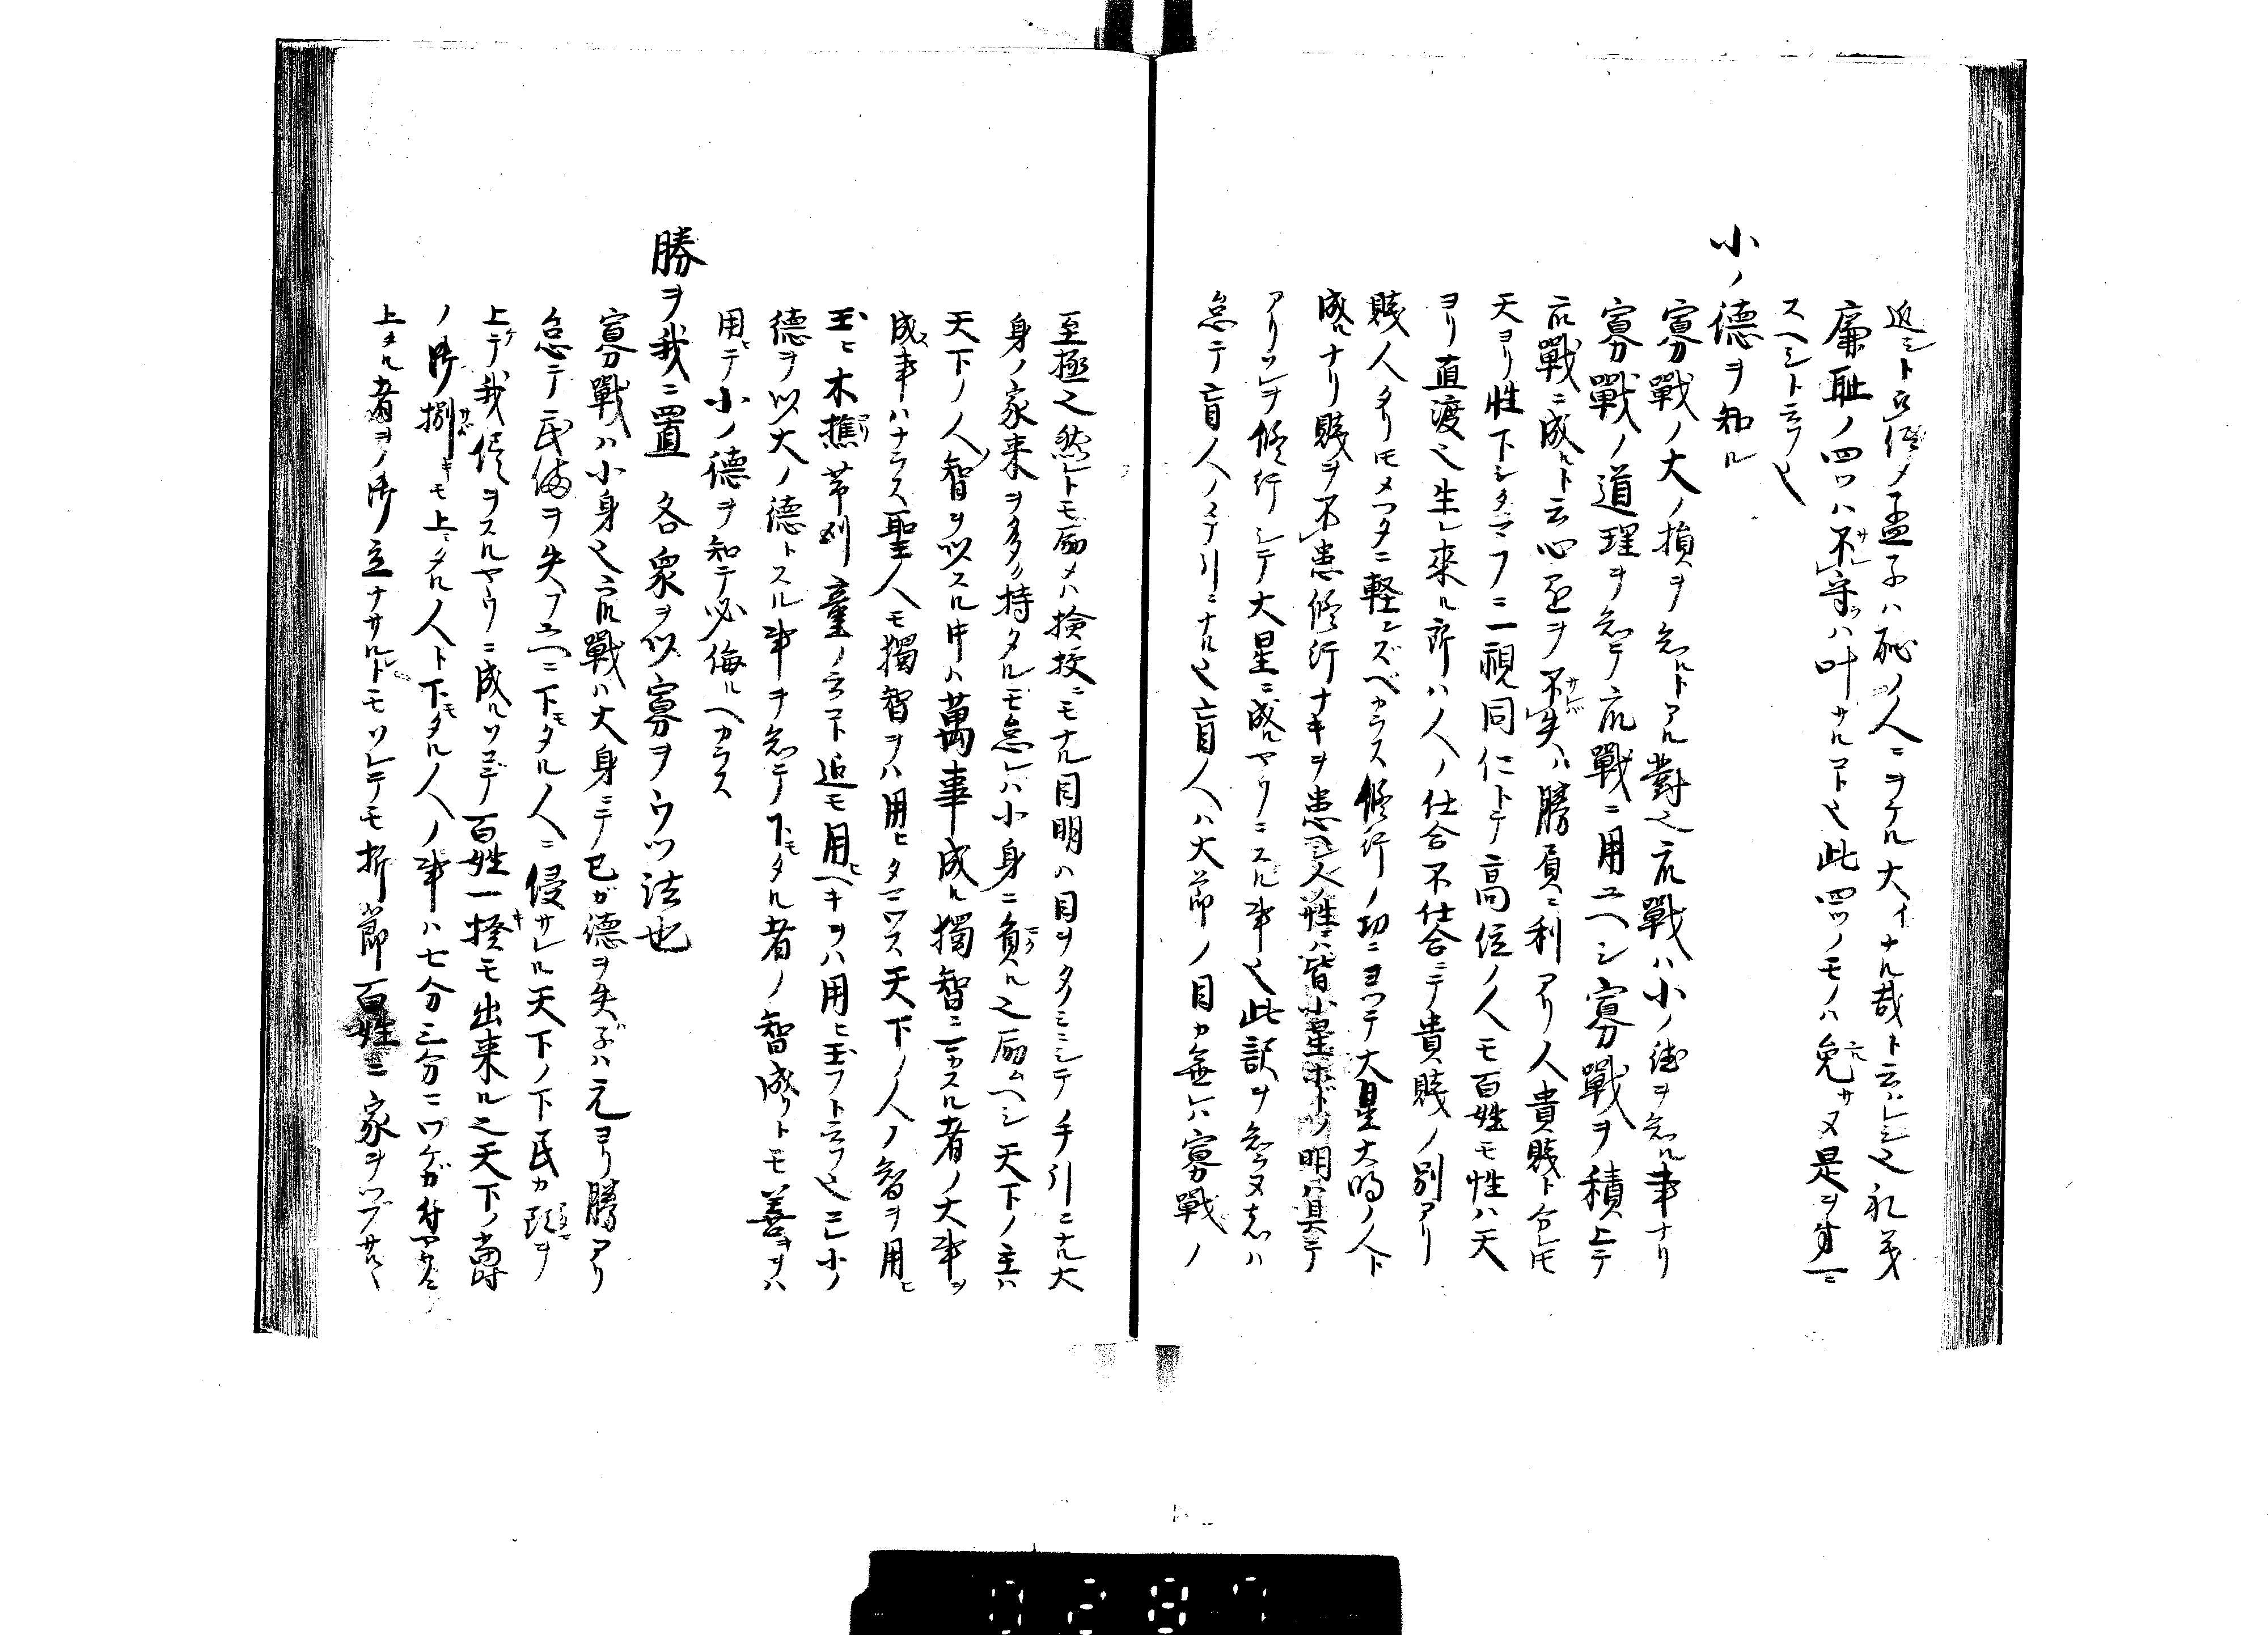 近シト云侭ノ孟子ハ恥ノ人ニヲケル大イナル哉ト云ハレシ之礼義
廉耻ノ四ツハ不守ハ叶サルコト也此四ツノモノハ免サヌ是ヲ第一ニ
スヘシト云フ也
小ノ徳ヲ知ル
寡戦ノ大ノ損ヲ知ルトアル對之衆戦ハ小ノ徳ヲ知ル事ナリ
寡戦ノ道理ヲ知テ衆戦ニ用ユヘシ寡戦ヲ積上テ
衆戦ニ成ルト云心ヲ不失ハ勝負ニ利アリ人貴賤ト分レモ
天ヨリ性下シタマフニ一視同仁トテ高位ノ人モ百姓モ性ハ天
ヨリ直渡也生レ來ル所ハ人ノ仕合不仕合ニテ貴賤ノ別アリ
賤人タリモメツタニ軽ンズベカラス修行ノ功ニヨツテ大星大明ノ人ト
成ルナリ賤ヲ不患修行ナキヲ患ヘシ人性ニハ皆小星ホドノ明ハ具テ
アリソレヲ修行シテ大星ニ成ルヤウニスル事也此訳ヲ知ラヌ者ハ
怠テ盲人ノ手引ニナル也盲人ハ大節ノ目カ無レハ寡戦ノ
至極之然レトモ励メハ撿挍ニモナル目明ハ目ヲタノミニシテ手引ニナル大
身ノ家来ヲ多ク持タルモ怠レハ小身ニ負ル之励ムヘシ天下ノ主ハ
天下ノ人智ヲ以スル時ハ萬事成ル獨智ニテスル者ノ大事ヲ
成ス事ハナラス聖人モ獨智ヲハ用ヒタマワス天下ノ人ノ智ヲ用ヒ
玉ヒ木樵草刈童ノ云コト迄モ用ヘキヲハ用ヒ玉フト云フ也ミレ小ノ
徳ヲ以大ノ徳トスル事ヲ知テ下モタル者ノ智成リトモ善ヲヲハ
用ヒテ小ノ徳ヲ知テ必侮ルヘカラス
勝ヲ我ニ置 各衆ヲ以寡ヲウツ法也
寡戦ハ小身也衆戦ハ大身ニテ己ガ徳ヲ失ネハ元ヨリ勝アリ
怠テ民備ヲ失フユヘニ下モタル人ニ侵サレル天下ノ下民カヲ
上ケテ我侭ヲスルヤウニ成ルソコデ百姓一揆モ出来ル之天下ノ爵
ノ御捌キモ上ミタル人ト下モタル人ノ事ハ七分三分ニワケガ付ヤウニ
上タル者ヲノ御立ナサルレトモソレテモ折節百姓ニ家ヲツブサル丶